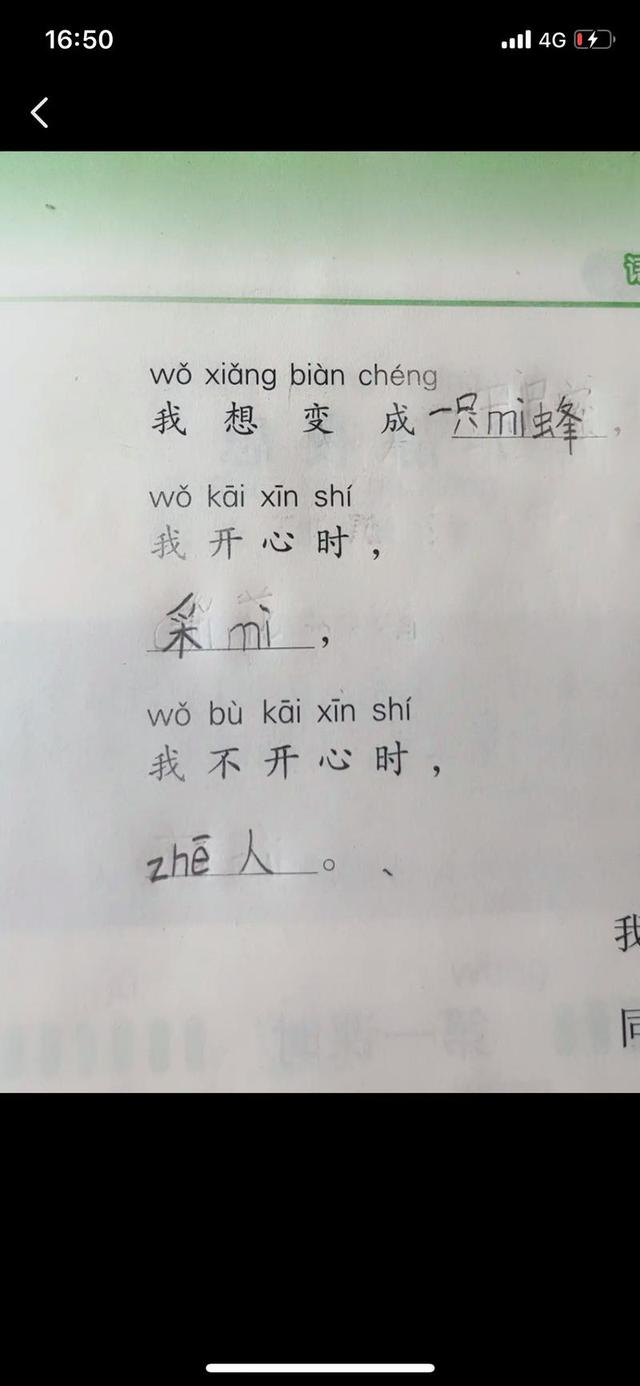 16:50
4G
wǒ xiǎng biàn chéng
我想变成一只mì蜂，
wǒ kāi xīn shí
我开心时，
采mì，
wǒ bù kāi xīn shí
我不开心时，
zhē人。、
我
同
第一课时